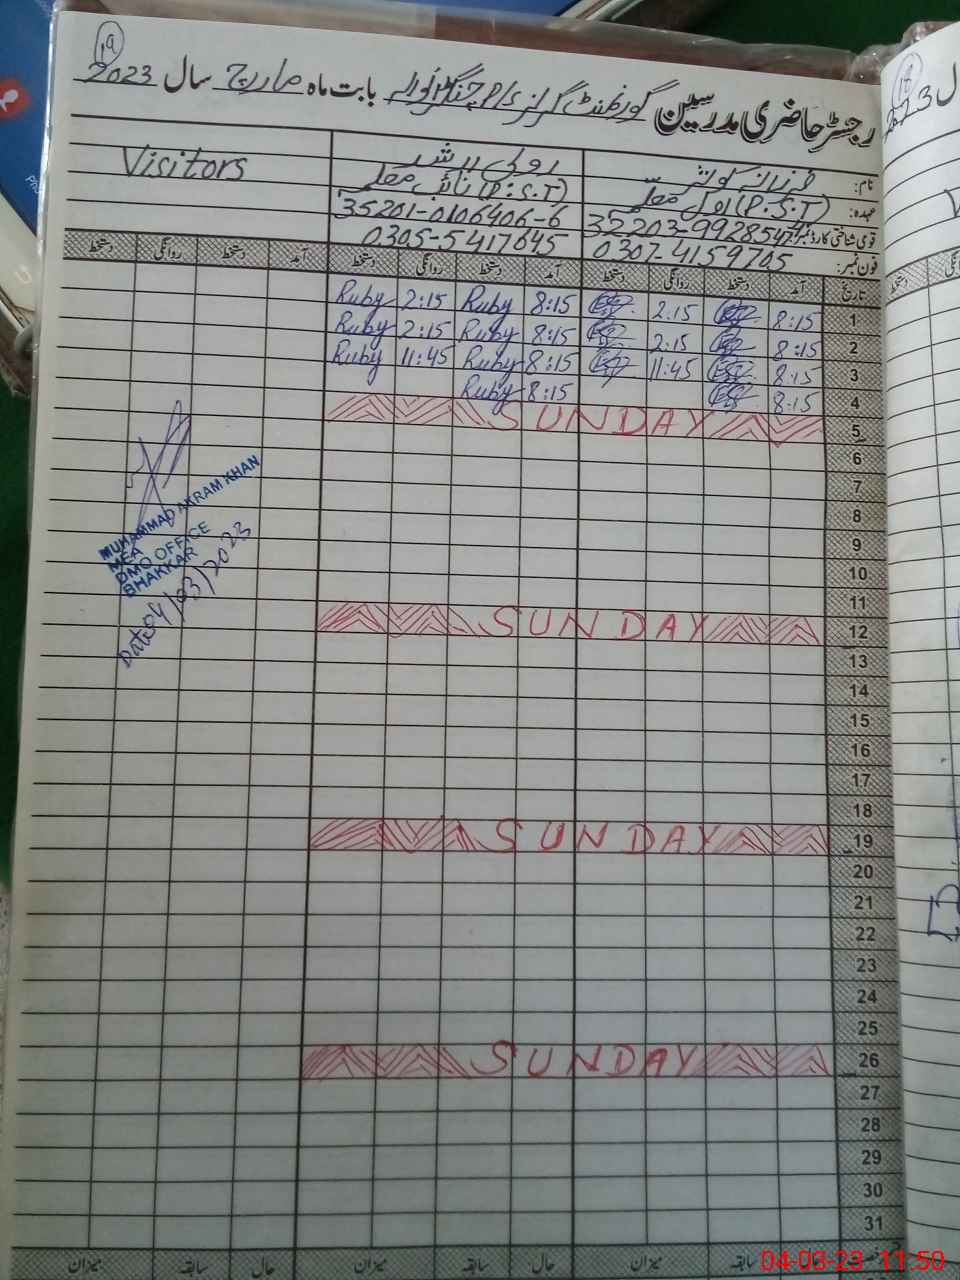 19
رجسٹر حاضری مدرسین گورنمنٹ گرلز P/S بابت ماہ مارچ سال 2023
نام: فرزانہ کوثر
روبی
Visitors
عہدہ: (P.S.T) اول معلمہ
(P.S.T) نائب معلمہ
قومی شناختی کارڈ نمبر:
35201-0106406-6
فون نمبر: 0307-4159705
0305-5417645
تاریخ آمد دستخط روانگی دستخط آمد دستخط روانگی دستخط آمد دستخط روانگی دستخط
1 8:15 2:15 8:15 Ruby 2:15 Ruby
2 8:15 2:15 8:15 Ruby 2:15 Ruby
3 8:15 11:45 8:15 Ruby 11:45 Ruby
4 8:15 8:15 Ruby
5 SUNDAY
6
7
8
9
10
11
12 SUNDAY
13
14
15
16
17
18
19 SUNDAY
20
21
22
23
24
25
26 SUNDAY
27
28
29
30
31
سابقہ میزان حال سابقہ میزان حال سابقہ میزان
MUHAMMAD AKRAM KHAN
MEA
DMO OFFICE
BHAKKAR
Date 04/03/2023
18
2023
04-03-23 11:50